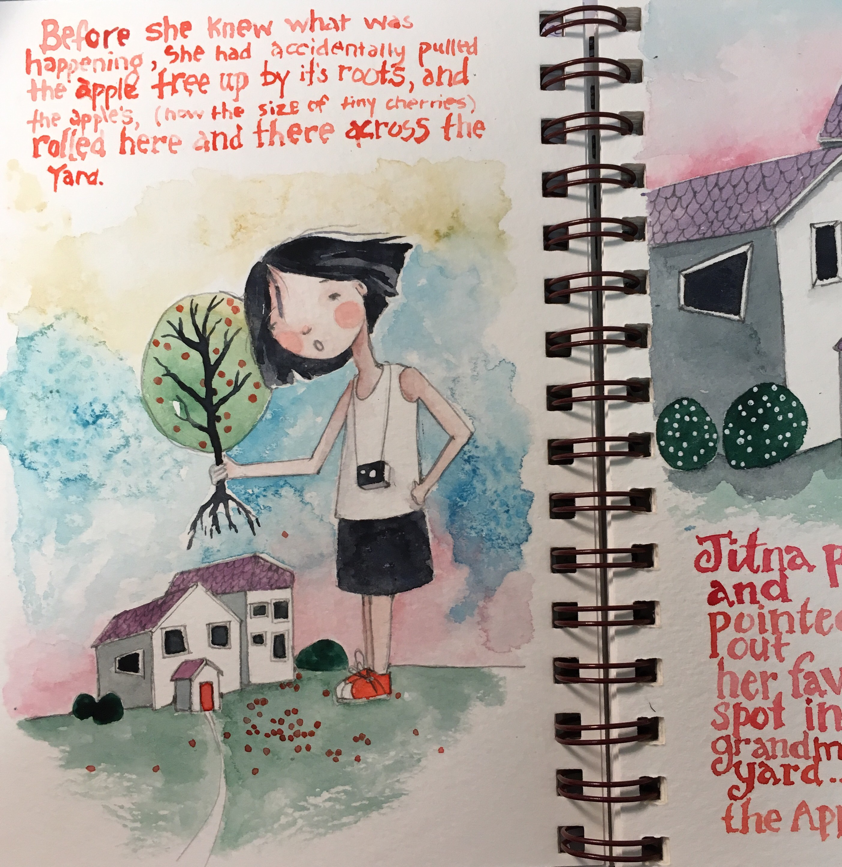 Before she knew what was
happening, she had accidentally pulled
the apple tree up by it's roots, and
the apple's, (now the size of tiny cherries)
rolled here and there across the
Yard.
Jitna
and
pointed
out
her
spot in
yard...
the